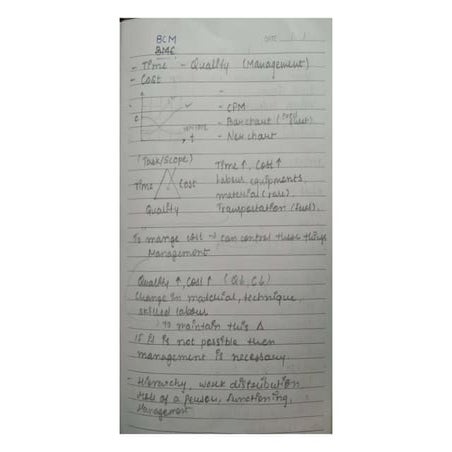 BCM
DATE
- Time - Quality (Management)
- Cost
- CPM
- Barchart (Excel sheet)
- Net chart
(Task/Scope)
Time Cost
Quality
Time ↑, Cost ↑
labour equipments,
material (rate)
Transportation (fuel).
To mange cost → can control these things
Management
Quality ↑, Cost ↑ (Q↓, C↓)
Change in material, technique,
skilled labour
To maintain this Δ
If it is not possible then
management is necessary.
- Hierarchy, work distribution
role of a person, functioning,
Management